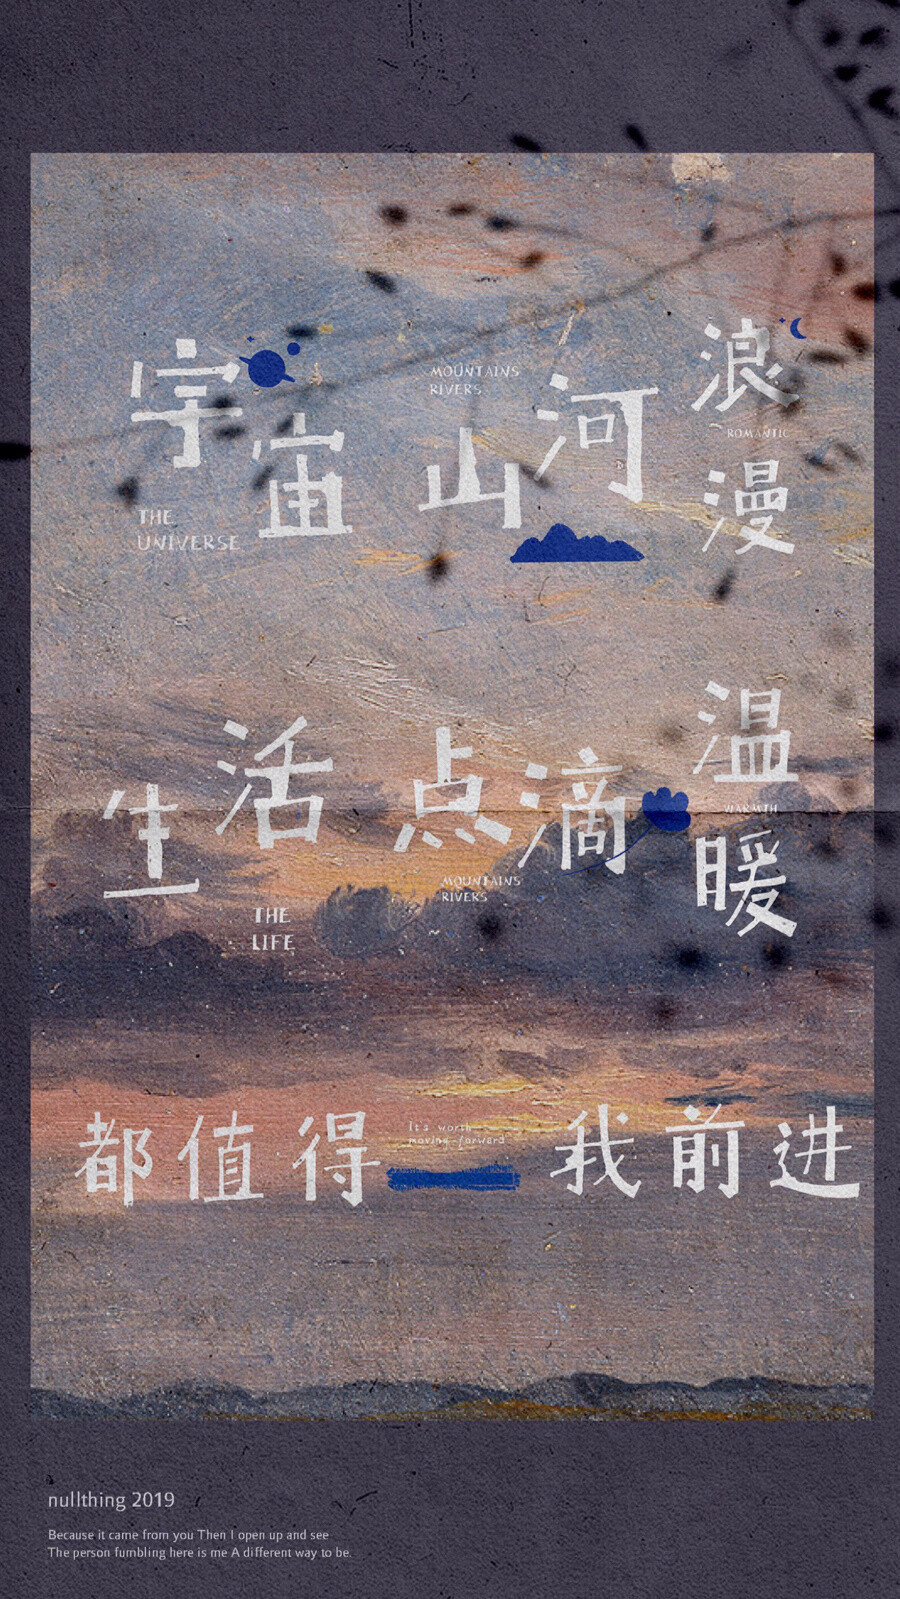 宇宙山河浪漫
THE
UNIVERSE
MOUNTAINS
RIVERS
ROMANTIC
生活点滴温暖
THE
LIFE
MOUNTAINS
RIVERS
WARMTH
都值得我前进
It's worth
moving forward
nullthing 2019
Because it came from you Then I open up and see
The person fumbling here is me A different way to be.